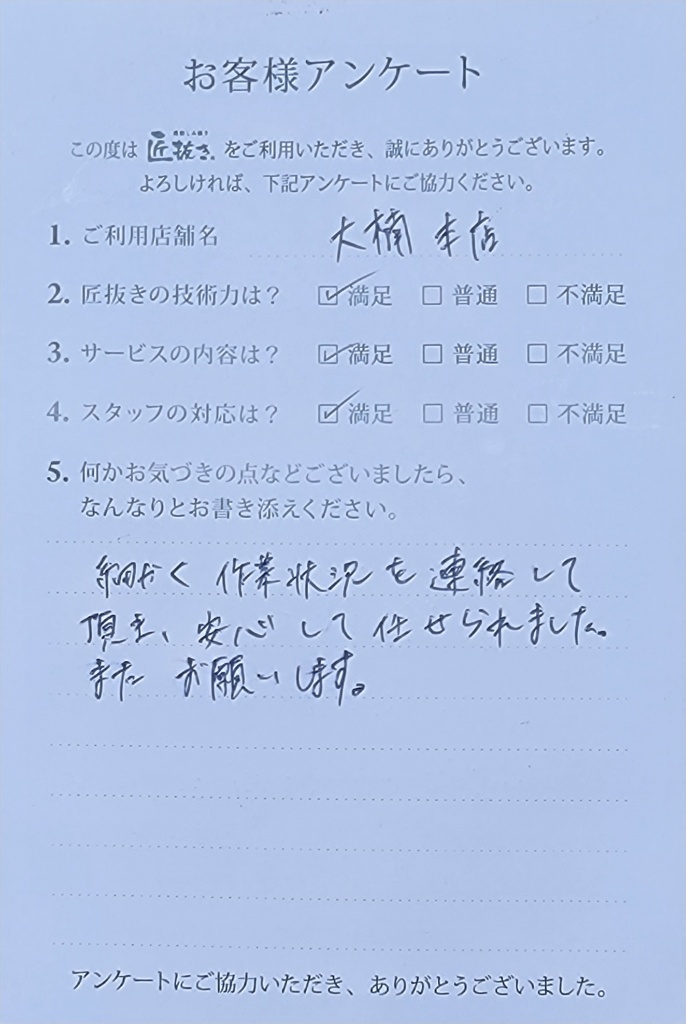 お客様アンケート
この度は 匠抜き をご利用いただき、誠にありがとうございます。
よろしければ、下記アンケートにご協力ください。
1. ご利用店舗名 大楠本店
2. 匠抜きの技術力は? ☑満足 □普通 □不満足
3. サービスの内容は? ☑満足 □普通 □不満足
4. スタッフの対応は? ☑満足 □普通 □不満足
5. 何かお気づきの点などございましたら、
なんなりとお書き添えください。
細かく作業状況を連絡して
頂き、安心して任せられました。
またお願いします。
アンケートにご協力いただき、ありがとうございました。